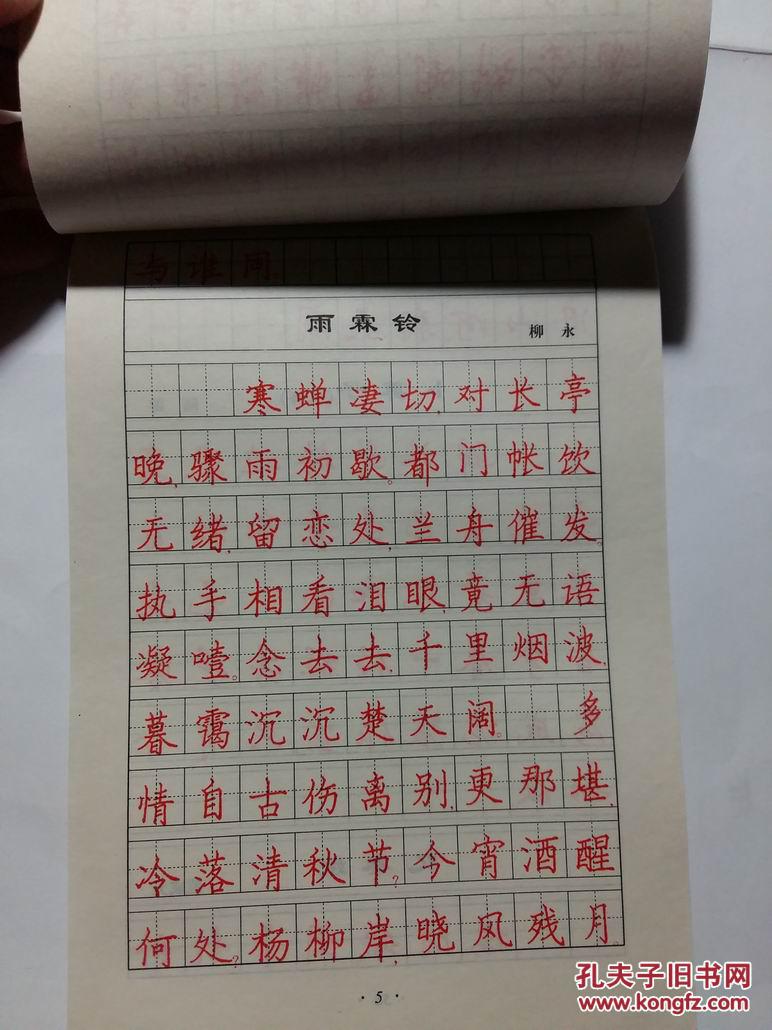 与谁同
雨霖铃
柳永
寒蝉凄切,对长亭
晚,骤雨初歇。都门帐饮
无绪,留恋处,兰舟催发。
执手相看泪眼,竟无语
凝噎。念去去,千里烟波,
暮霭沉沉楚天阔。 多
情自古伤离别,更那堪,
冷落清秋节?今宵酒醒
何处?杨柳岸,晓风残月
·5·
孔夫子旧书网
www.kongfz.com